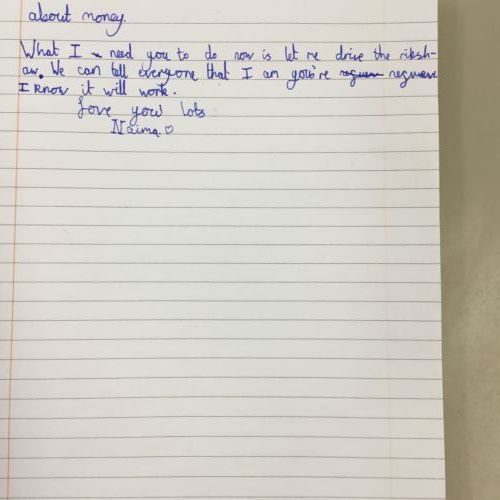 about money.
What I need you to do now is let me drive the riksh-
aw. We can tell everyone that I am you're
I know it will work.
Love you lots
Naima